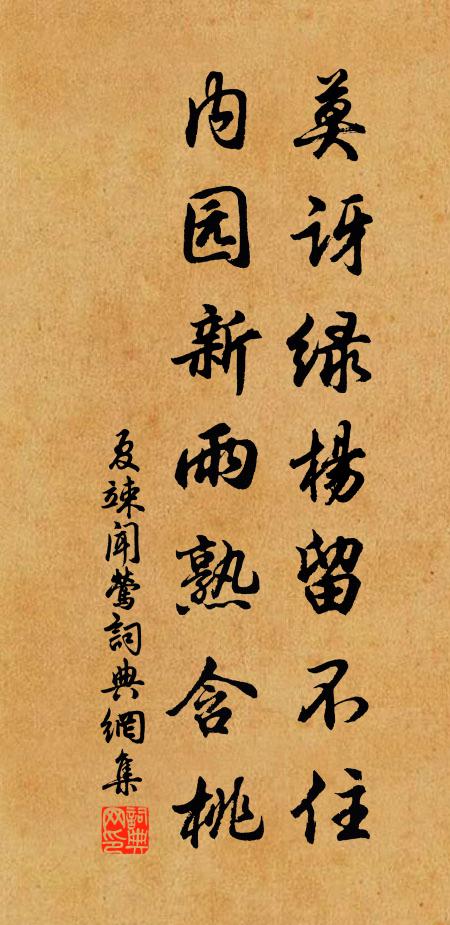 莫讶绿杨留不住
内园新雨熟含桃
夏竦闻莺詞典網集
詞典
网印